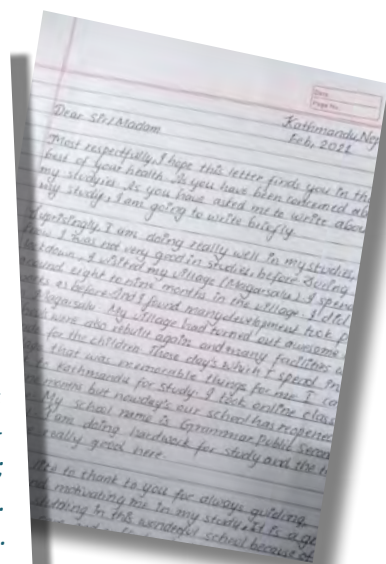 Date
Page No.
Kathmandu, Nep
Feb, 2021
Dear Sir/Madam
Most respectfully, I hope this letter finds you in the
best of your health. As you have been concerned ab
my studies. As you have asked me to write about
my study, I am going to write briefly.
Suprisingly I am doing really well in my studies,
I was not very good in studies before. During
lockdown, I visited my village (Magarsalu). I spend
around eight to nine months in the village. I did
as before. And I found many development took p
Magarsalu. My village had turned out awesome
were also rebuilt again and many facilities
for the children. Those day's which I spend in
that was memorable things for me. I ca
to Kathmandu for study. I took online class
months but nowday's our school has reopened
My school name is Grammar Public
I am doing hardwork for study and the
really good here.
like to thank to you for always guiding
and motivating me in my study. It is a
studying in this wonderful school because of